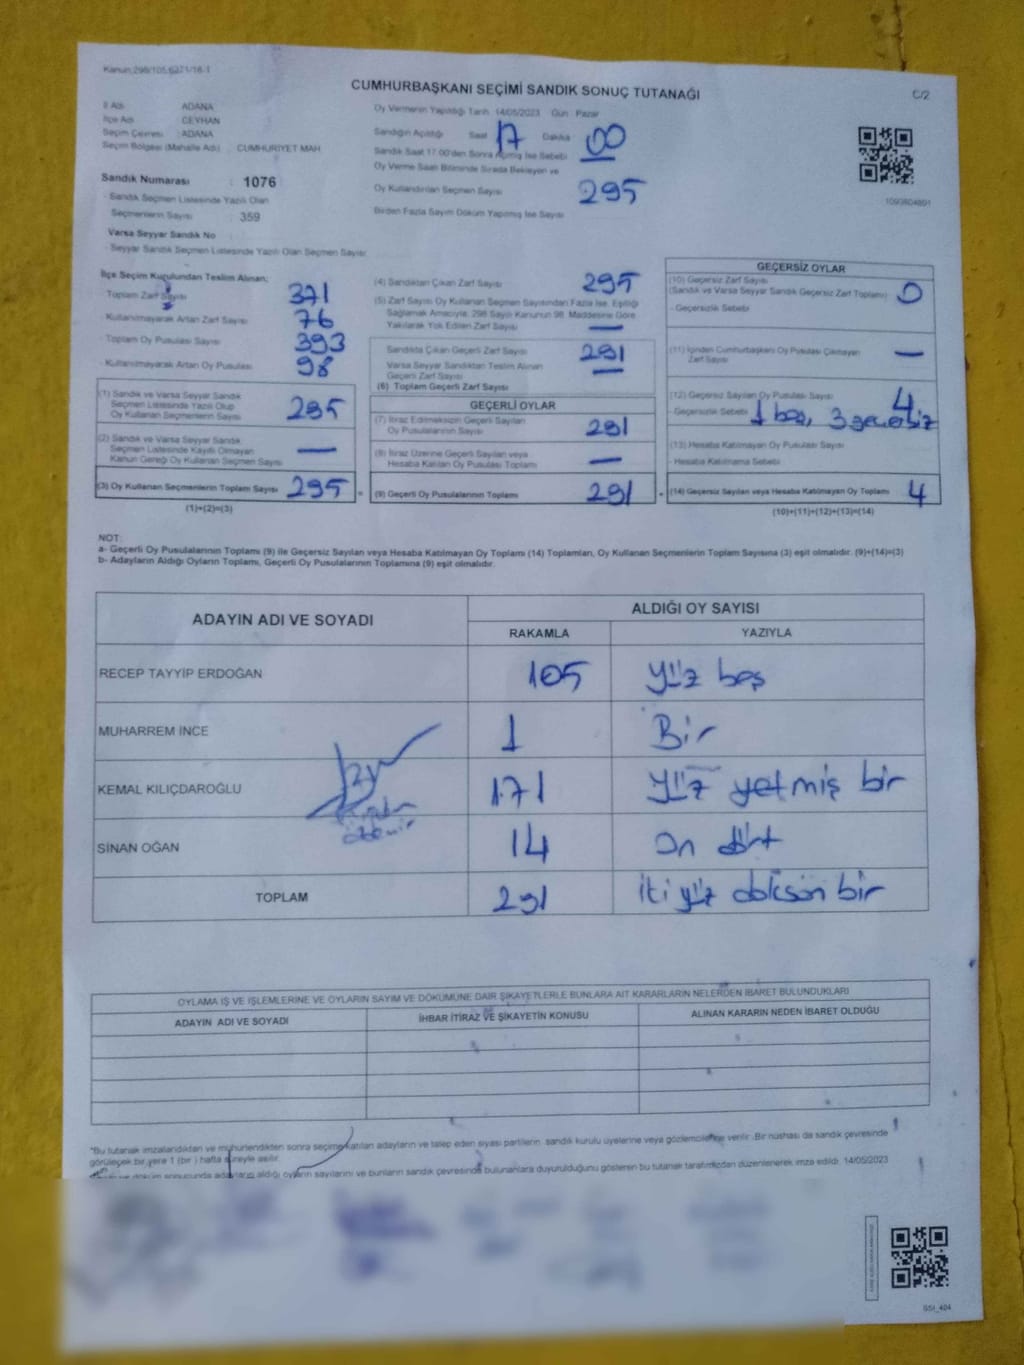 Kanun:298/105,6271/16-1
CUMHURBAŞKANI SEÇİMİ SANDIK SONUÇ TUTANAĞI
C/2
İl Adı : ADANA
İlçe Adı : CEYHAN
Seçim Çevresi : ADANA
Seçim Bölgesi (Mahalle Adı) : CUMHURİYET MAH
Sandık Numarası : 1076
- Sandık Seçmen Listesinde Yazılı Olan
Seçmenlerin Sayısı : 359
Varsa Seyyar Sandık No :
- Seyyar Sandık Seçmen Listesinde Yazılı Olan Seçmen Sayısı:
Oy Vermenin Yapıldığı Tarih 14/05/2023 Gün : Pazar
Sandığın Açıldığı Saat 17 Dakika 00
Sandık Saat 17.00'den Sonra Açılmış İse Sebebi
Oy Verme Saati Bitiminde Sırada Bekleyen ve
Oy Kullandırılan Seçmen Sayısı 295
Birden Fazla Sayım Döküm Yapılmış İse Sayısı
1093804891
İlçe Seçim Kurulundan Teslim Alınan;
- Toplam Zarf Sayısı 371
- Kullanılmayarak Artan Zarf Sayısı 76
- Toplam Oy Pusulası Sayısı 393
- Kullanılmayarak Artan Oy Pusulası 98
(1) Sandık ve Varsa Seyyar Sandık
Seçmen Listesinde Yazılı Olup
Oy Kullanan Seçmenlerin Sayısı 295
(2) Sandık ve Varsa Seyyar Sandık
Seçmen Listesinde Kayıtlı Olmayan
Kanun Gereği Oy Kullanan Seçmen Sayısı —
(3) Oy Kullanan Seçmenlerin Toplam Sayısı 295
(1)+(2)=(3)
(4) Sandıktan Çıkan Zarf Sayısı 295
(5) Zarf Sayısı Oy Kullanan Seçmen Sayısından Fazla İse, Eşitliği
Sağlamak Amacıyla, 298 Sayılı Kanunun 98. Maddesine Göre
Yakılarak Yok Edilen Zarf Sayısı —
Sandıkta Çıkan Geçerli Zarf Sayısı 291
Varsa Seyyar Sandıktan Teslim Alınan
Geçerli Zarf Sayısı —
(6) Toplam Geçerli Zarf Sayısı
GEÇERLİ OYLAR
(7) İtiraz Edilmeksizin Geçerli Sayılan
Oy Pusulalarının Sayısı 291
(8) İtiraz Üzerine Geçerli Sayılan veya
Hesaba Katılan Oy Pusulası Toplamı —
(9) Geçerli Oy Pusulalarının Toplamı 291
GEÇERSİZ OYLAR
(10) Geçersiz Zarf Sayısı
(Sandık ve Varsa Seyyar Sandık Geçersiz Zarf Toplamı) 0
- Geçersizlik Sebebi
(11) İçinden Cumhurbaşkanı Oy Pusulası Çıkmayan
Zarf Sayısı —
(12) Geçersiz Sayılan Oy Pusulası Sayısı 4
Geçersizlik Sebebi 1 boş, 3 geçersiz
(13) Hesaba Katılmayan Oy Pusulası Sayısı
- Hesaba Katılmama Sebebi
(14) Geçersiz Sayılan veya Hesaba Katılmayan Oy Toplamı 4
(10)+(11)+(12)+(13)=(14)
NOT:
a- Geçerli Oy Pusulalarının Toplamı (9) ile Geçersiz Sayılan veya Hesaba Katılmayan Oy Toplamı (14) Toplamları, Oy Kullanan Seçmenlerin Toplam Sayısına (3) eşit olmalıdır. (9)+(14)=(3)
b- Adayların Aldığı Oyların Toplamı, Geçerli Oy Pusulalarının Toplamına (9) eşit olmalıdır.
ADAYIN ADI VE SOYADI ALDIĞI OY SAYISI
RAKAMLA YAZIYLA
RECEP TAYYİP ERDOĞAN 105 Yüz beş
MUHARREM İNCE 1 Bir
KEMAL KILIÇDAROĞLU 171 Yüz yetmiş bir
SİNAN OĞAN 14 On dört
TOPLAM 291 iki yüz doksan bir
OYLAMA İŞ VE İŞLEMLERİNE VE OYLARIN SAYIM VE DÖKÜMÜNE DAİR ŞİKAYETLERLE BUNLARA AİT KARARLARIN NELERDEN İBARET BULUNDUKLARI
ADAYIN ADI VE SOYADI İHBAR İTİRAZ VE ŞİKAYETİN KONUSU ALINAN KARARIN NEDEN İBARET OLDUĞU
*Bu tutanak imzalandıktan ve mühürlendikten sonra seçime katılan adayların ve talep eden siyasi partilerin sandık kurulu üyelerine veya gözlemcilerine verilir. Bir nüshası da sandık çevresinde
görülecek bir yere 1 (bir) hafta süreyle asılır.
döküm sonucunda adayların aldığı oyların sayılarını ve bunların sandık çevresinde bulunanlara duyurulduğunu gösteren bu tutanak tarafımızdan düzenlenerek imza edildi. 14/05/2023
SSI_404